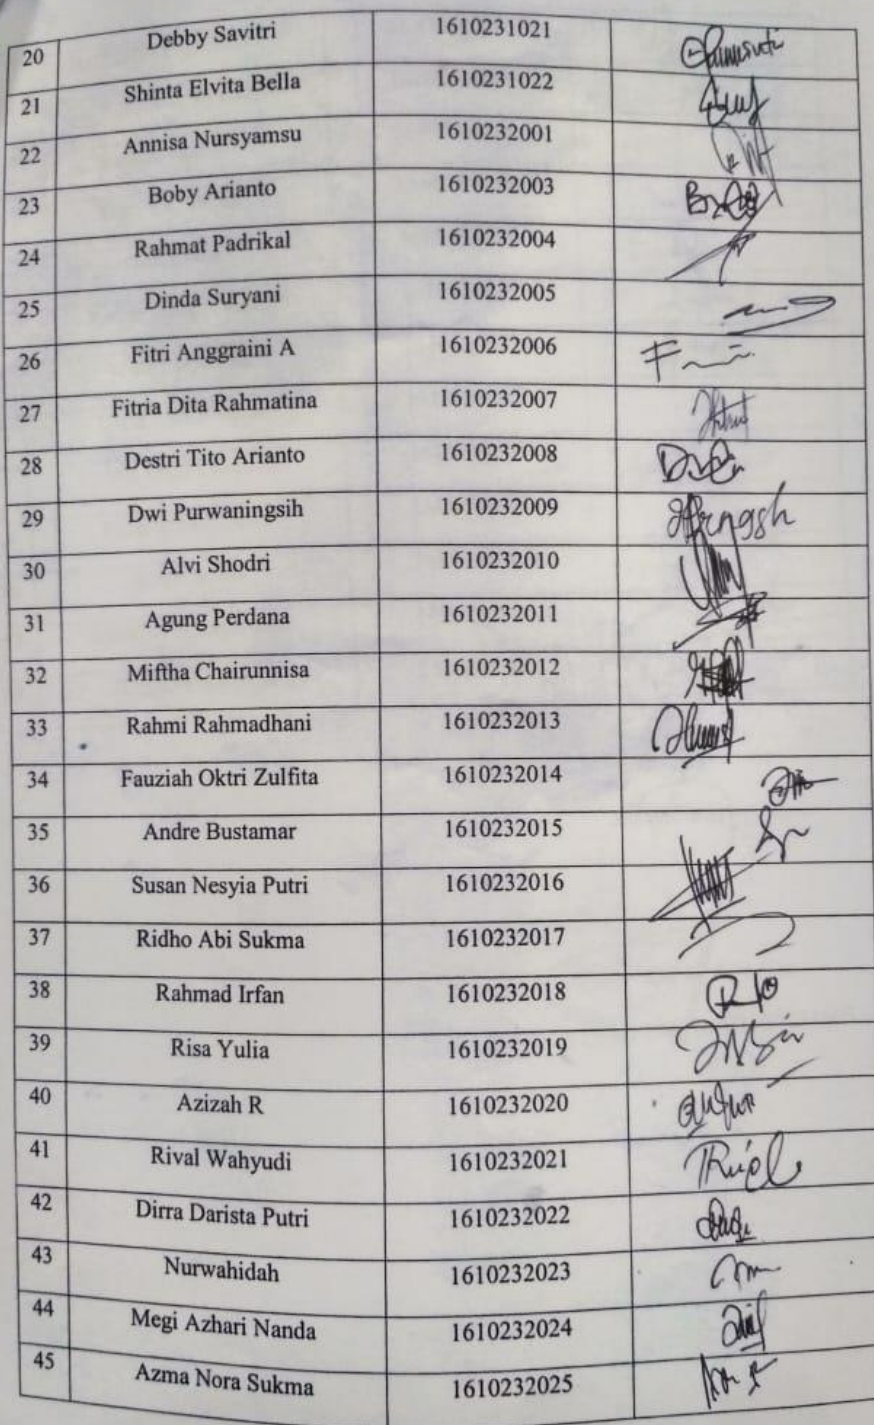 20 Debby Savitri 1610231021
21 Shinta Elvita Bella 1610231022
22 Annisa Nursyamsu 1610232001
23 Boby Arianto 1610232003
24 Rahmat Padrikal 1610232004
25 Dinda Suryani 1610232005
26 Fitri Anggraini A 1610232006
27 Fitria Dita Rahmatina 1610232007
28 Destri Tito Arianto 1610232008
29 Dwi Purwaningsih 1610232009
30 Alvi Shodri 1610232010
31 Agung Perdana 1610232011
32 Miftha Chairunnisa 1610232012
33 Rahmi Rahmadhani 1610232013
34 Fauziah Oktri Zulfita 1610232014
35 Andre Bustamar 1610232015
36 Susan Nesyia Putri 1610232016
37 Ridho Abi Sukma 1610232017
38 Rahmad Irfan 1610232018
39 Risa Yulia 1610232019
40 Azizah R 1610232020
41 Rival Wahyudi 1610232021
42 Dirra Darista Putri 1610232022
43 Nurwahidah 1610232023
44 Megi Azhari Nanda 1610232024
45 Azma Nora Sukma 1610232025